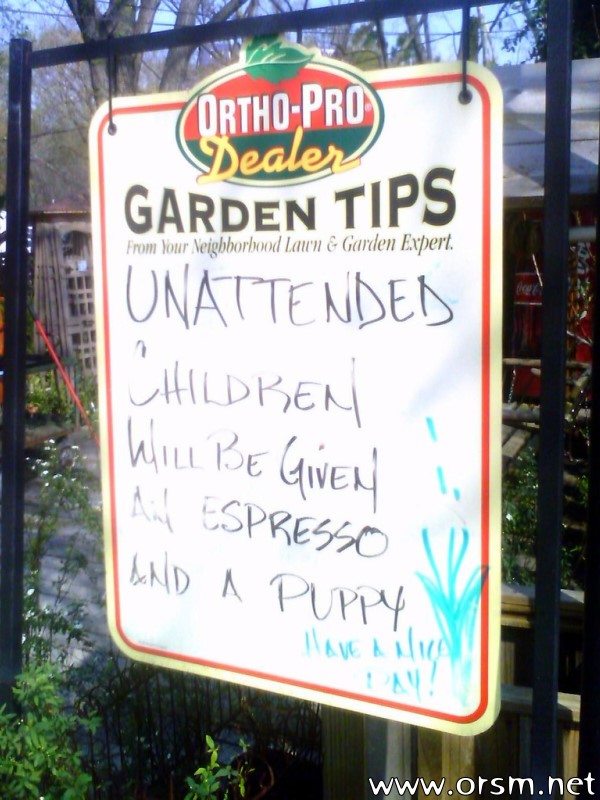 ORTHO-PRO®
Dealer
GARDEN TIPS
From Your Neighborhood Lawn & Garden Expert.
UNATTENDED
CHILDREN
WILL BE GIVEN
AN ESPRESSO
AND A PUPPY
HAVE A NICE
DAY!
Coca-Cola
www.orsm.net